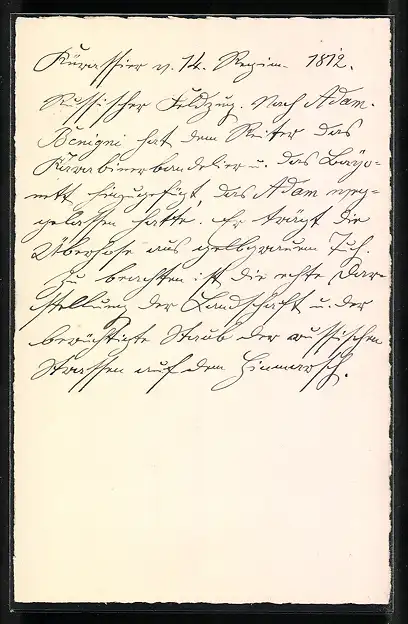 Kürassier v. 14. Regim. 1812.
Russischer Feldzug. Nach Adam.
Benigni hat dem Reiter das
Karabinerbandelier u. das Bajo-
nett hinzugefügt, das Adam weg-
gelassen hatte. Er trägt die
Überhose aus gelbgrauem Tuch.
Zu beachten ist die echte Dar-
stellung der Landschaft u. der
berüchtigte Staub der russischen
Strassen auf dem Hinmarsch.